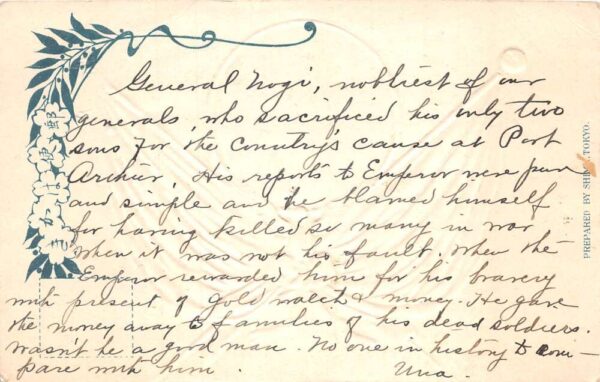 General Nogi, nobliest of our
generals, who sacrificed his only two
sons for the country's cause at Port
Archur, His reports to Emperor were pure
and simple and he blamed himself
for having killed so many in war
when it was not his fault, when the
Emperor rewarded him for his bravery
with present of gold watch & money. He gave
the money away to families of his dead soldiers.
Wasn't he a good man. No one in history to com-
pare with him. Una.
郵便はかき
PREPARED BY TOKYO.